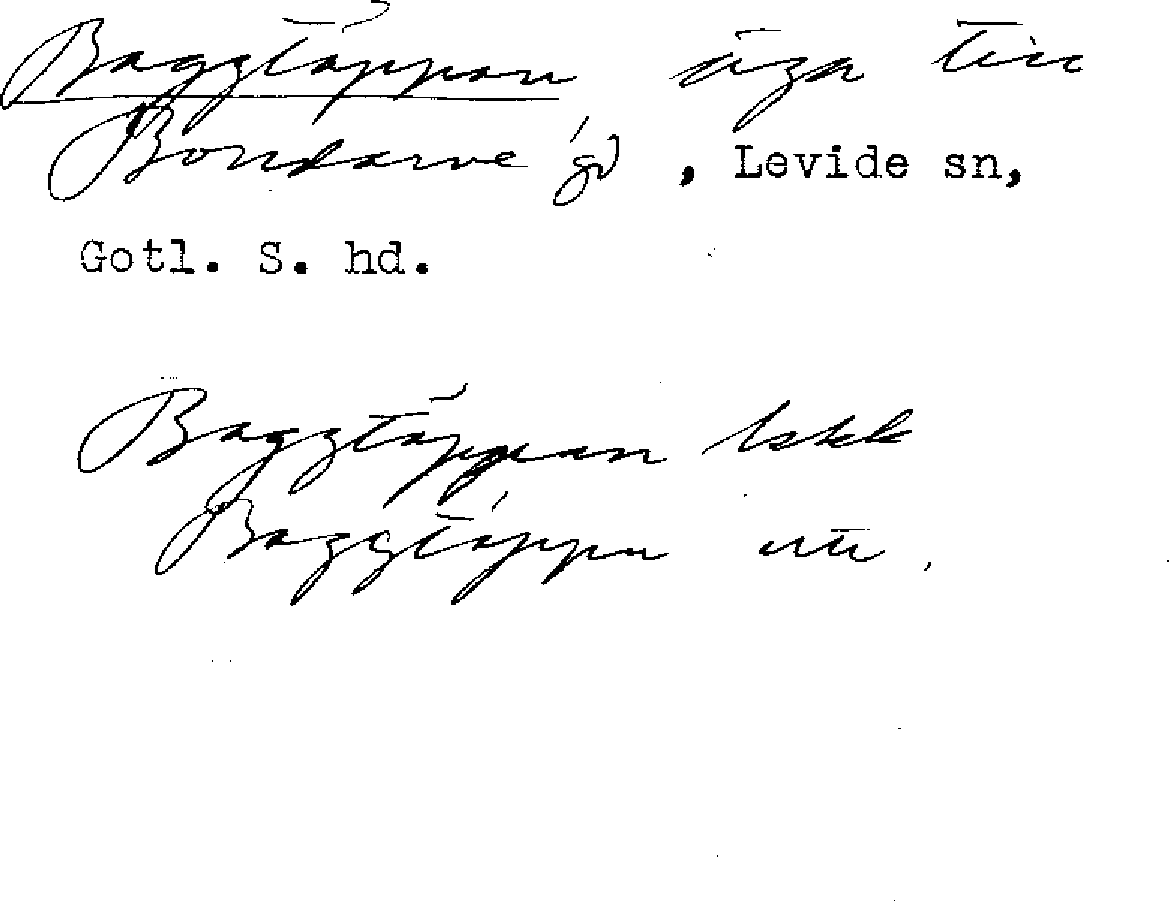 Baggtäppan äga till
Bondarve gd, Levide sn,
Gotl. S. hd.
Baggtäppan lskk
Baggtäppa